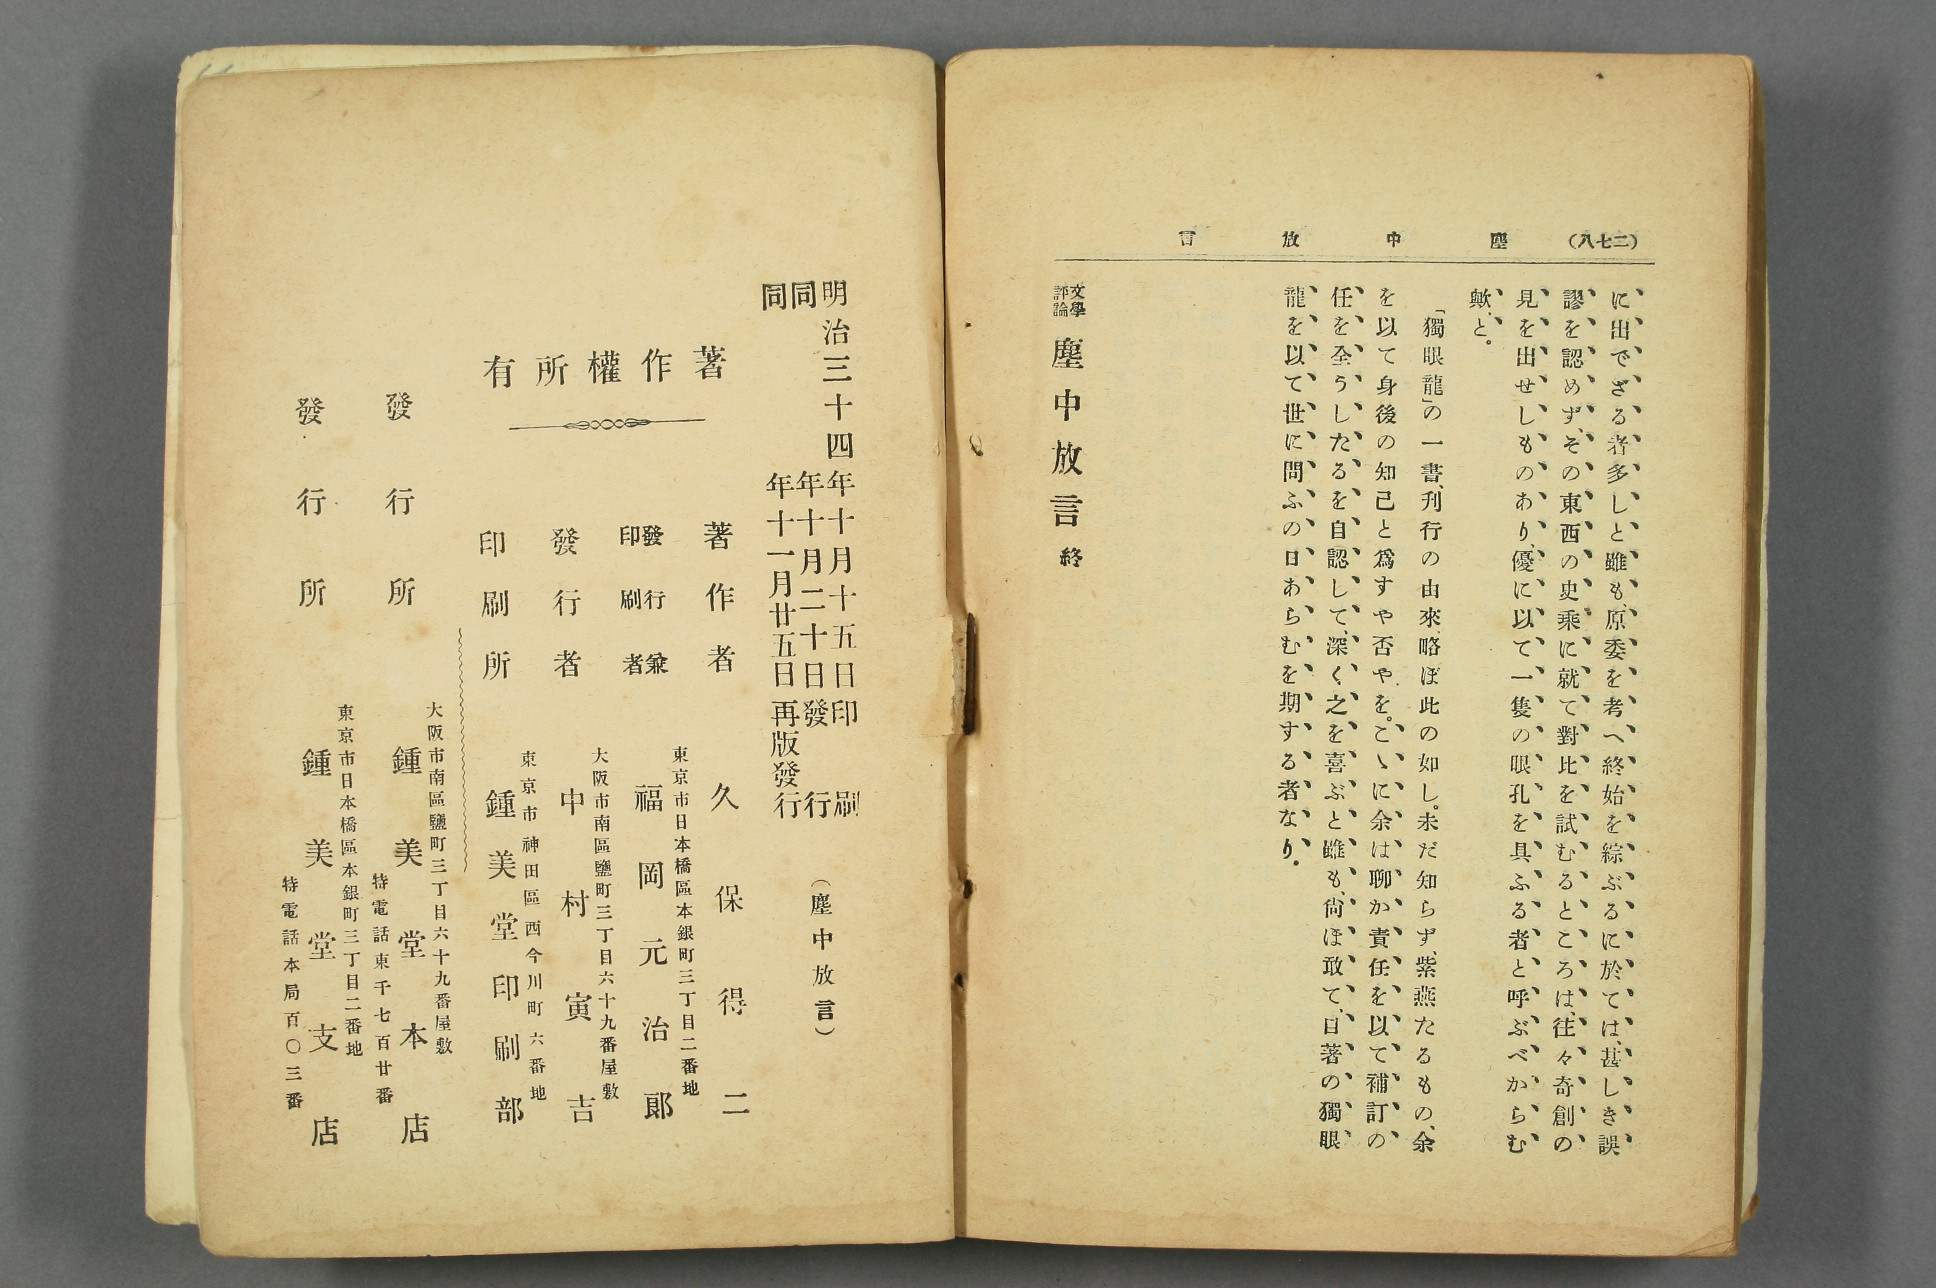 (二七八)　塵中放言
に出でざる者多しと雖も、原委を考へ終始を綜ぶるに於ては、甚しき誤
謬を認めず、その東西の史乘に就て對比を試むるところは、往々奇創の
見を出せしものあり、優に以て一隻の眼孔を具ふる者と呼ぶべからむ
歟と。
「獨眼龍」の一書、刋行の由來、略ぼ此の如し。未だ知らず、紫燕たるもの、余
を以て身後の知己と爲すや否やを。こゝに余は聊か責任を以て補訂の
任を全うしたるを自認して、深く之を喜ぶと雖も、尙ほ敢て、日著の獨眼
龍を以て世に問ふの日あらむを期する者なり。
文學評論 塵中放言 終
明治三十四年十月十五日印刷
同年十月二十日發行
同年十一月廿五日再版發行
(塵中放言)
著作權所有
著作者 久保得二
東京市日本橋區本銀町三丁目二番地
發行兼印刷者 福岡元治郞
大阪市南區鹽町三丁目六十九番屋敷
發行者 中村寅吉
東京市神田區西今川町六番地
印刷所 鍾美堂印刷部
大阪市南區鹽町三丁目六十九番屋敷
發行所 鍾美堂本店
特電話東千七百廿番
東京市日本橋區本銀町三丁目二番地
發行所 鍾美堂支店
特電話本局百〇三番